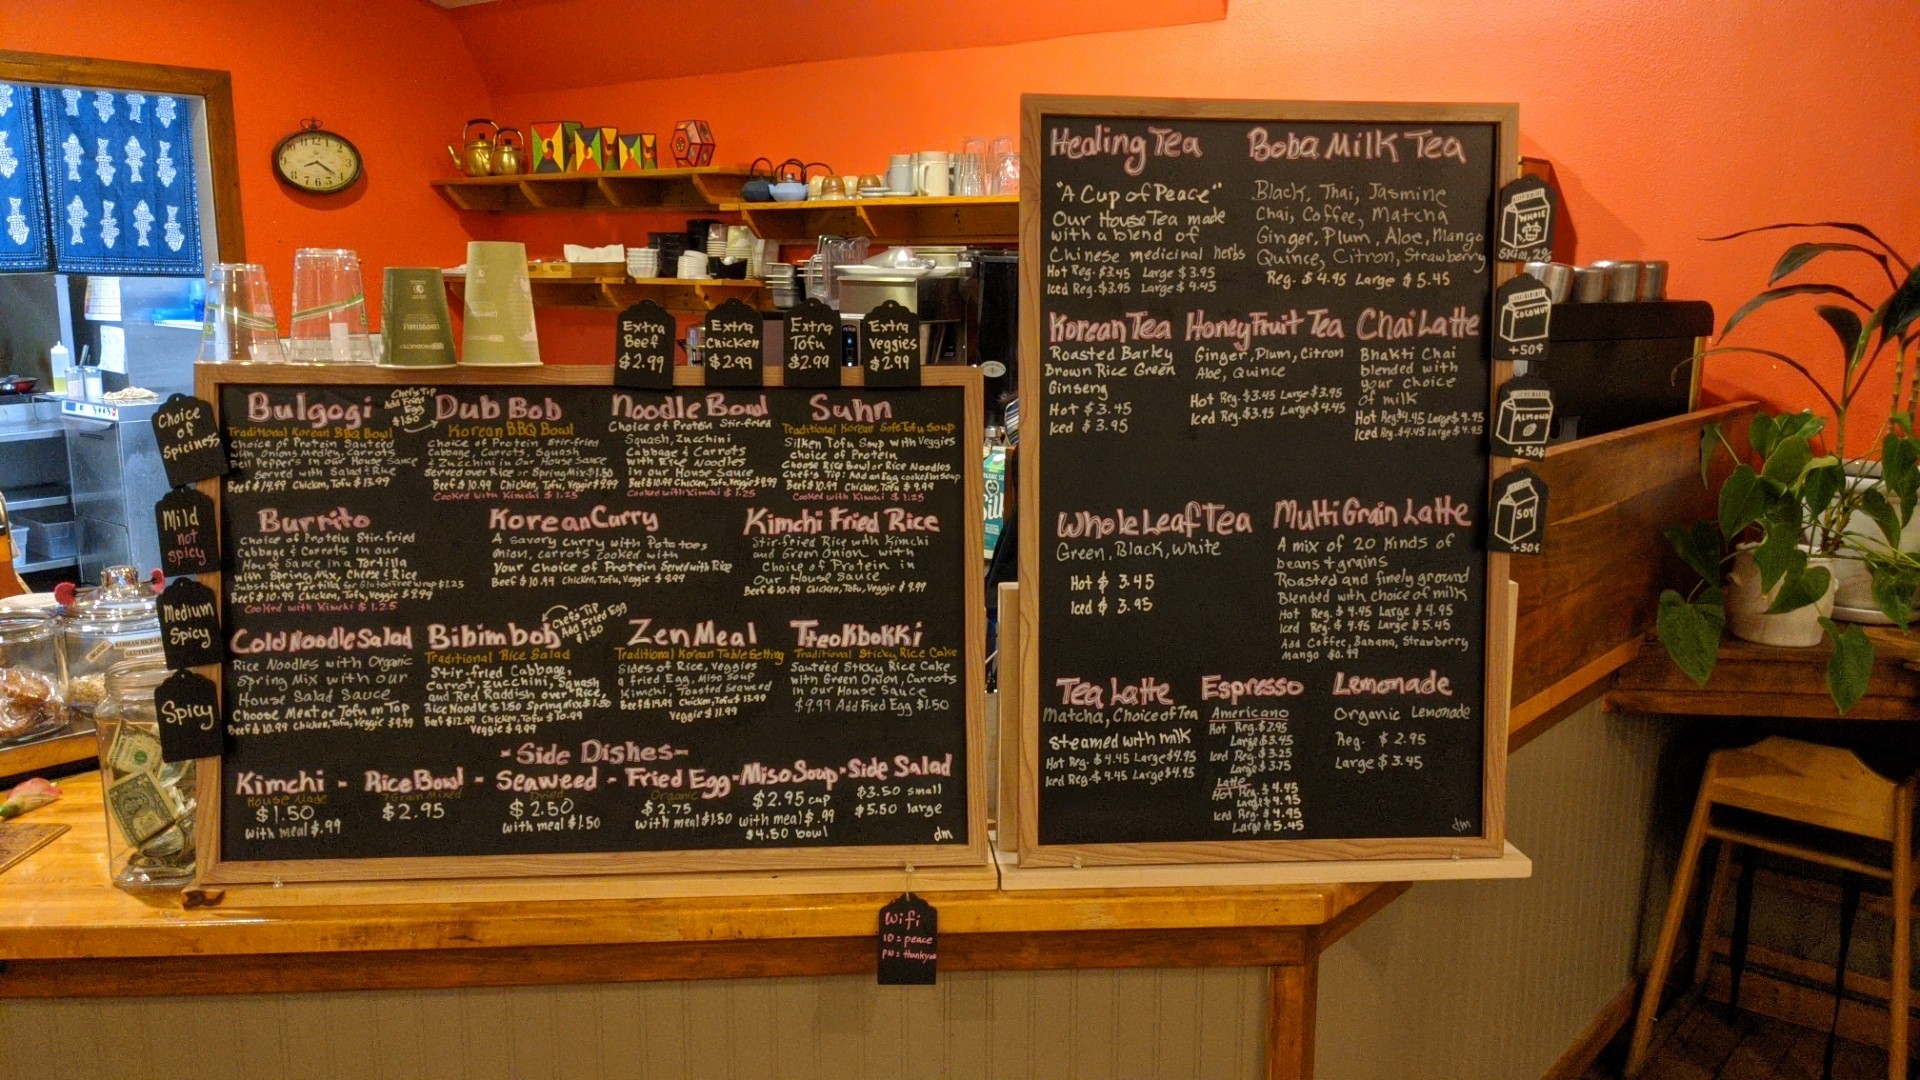 Extra
Beef
$2.99
Extra
Chicken
$2.99
Extra
Tofu
$2.99
Extra
Veggies
$2.99
Choice
of
Spiciness
Mild
not
spicy
Medium
Spicy
Spicy
Bulgogi
Traditional Korean BBQ Bowl
Choice of Protein Sauteed
with Onions, Medley, Carrots
Bell Peppers in our House Sauce
Served with Salad & Rice
Beef $14.99 Chicken, Tofu $13.99
Chef's Tip
Add Fried
Egg
$1.50
Dub Bob
Korean BBQ Bowl
Choice of Protein Stir-fried
Cabbage, Carrots, Squash
& Zucchini in Our House Sauce
Served over Rice or Spring Mix $1.50
Beef $10.99 Chicken, Tofu, Veggie $9.99
Cooked with Kimchi $1.25
Noodle Bowl
Choice of Protein Stir-fried
Squash, Zucchini
Cabbage & Carrots
with Rice Noodles
in our House Sauce
Beef $10.99 Chicken, Tofu, Veggie $9.99
Cooked with Kimchi $1.25
Suhn
Traditional Korean Soft Tofu Soup
Silken Tofu Soup with Veggies
Choice of Protein
Choose Rice Bowl or Rice Noodles
Chef's Tip: Add an Egg cooked in soup
Beef $10.99 Chicken, Tofu $9.99
Cooked with Kimchi $1.25
Burrito
Choice of Protein Stir-fried
Cabbage & Carrots in our
House Sauce in a Tortilla
with Spring Mix, Cheese & Rice
Substitute Tortilla for Gluten Free wrap $1.25
Beef $10.99 Chicken, Tofu, Veggie $9.99
Cooked with Kimchi $1.25
Korean Curry
A savory curry with Potatoes
onion, carrots cooked with
Your choice of Protein Served with Rice
Beef $10.99 Chicken, Tofu, Veggie $9.99
Kimchi Fried Rice
Stir-fried Rice with Kimchi
and Green Onion with
Choice of Protein in
Our House Sauce
Beef $10.99 Chicken, Tofu, Veggie $9.99
Cold Noodle Salad
Rice Noodles with Organic
Spring Mix with our
House Salad Sauce
Choose Meat or Tofu on Top
Beef $10.99 Chicken, Tofu, Veggie $9.99
Chef's Tip
Add Fried Egg
$1.50
Bibimbob
Traditional Rice Salad
Stir-fried Cabbage,
Carrot, Zucchini, Squash
and Red Raddish over Rice,
Rice Noodle $1.50 Spring mix $1.50
Beef $12.99 Chicken, Tofu $10.99
Veggie $9.99
Zen Meal
Traditional Korean Table Setting
Sides of Rice, Veggies
a fried Egg, Miso Soup
Kimchi, Toasted Seaweed
Beef $14.99 Chicken, Tofu $13.99
Veggie $11.99
Tteokbokki
Traditional Sticky Rice Cake
Sauteed Sticky Rice Cake
with Green Onion, Carrots
in our House Sauce
$9.99 Add Fried Egg $1.50
- Side Dishes -
Kimchi - Rice Bowl - Seaweed - Fried Egg - Miso Soup - Side Salad
House Made
$1.50
with meal $.99
7 Grain Mixed
$2.95
Dried
$2.50
with meal $1.50
Organic
$2.75
with meal $1.50
$2.95 cup
with meal $.99
$4.50 bowl
$3.50 small
$5.50 large
dm
Wifi
ID = peace
PW = thankyou
Healing Tea
"A Cup of Peace"
Our House Tea made
with a blend of
Chinese medicinal herbs
Hot Reg. $3.45 Large $3.95
Iced Reg. $3.95 Large $4.45
Boba Milk Tea
Black, Thai, Jasmine
Chai, Coffee, Matcha
Ginger, Plum, Aloe, Mango
Quince, Citron, Strawberry
Reg. $4.95 Large $5.45
Korean Tea
Roasted Barley
Brown Rice Green
Ginseng
Hot $3.45
Iced $3.95
Honey Fruit Tea
Ginger, Plum, Citron
Aloe, Quince
Hot Reg. $3.45 Large $3.95
Iced Reg. $3.95 Large $4.45
Chai Latte
Bhakti Chai
blended with
your choice
of milk
Hot Reg. $4.45 Large $4.95
Iced Reg. $4.45 Large $4.95
Whole Leaf Tea
Green, Black, White
Hot $3.45
Iced $3.95
Multi Grain Latte
A mix of 20 kinds of
beans & grains
Roasted and finely ground
Blended with choice of milk
Hot Reg. $4.45 Large $4.95
Iced Reg. $4.95 Large $5.45
Add Coffee, Banana, Strawberry
Mango $0.99
Tea Latte
Matcha, Choice of Tea
steamed with milk
Hot Reg. $4.45 Large $4.95
Iced Reg. $4.45 Large $4.95
Espresso
Americano
Hot Reg. $2.95
Large $3.45
Iced Reg. $3.25
Large $3.75
Latte
Hot Reg. $4.45
Large $4.95
Iced Reg. $4.95
Large $5.45
Lemonade
Organic Lemonade
Reg. $2.95
Large $3.45
dm
WHOLE
Skim, 2%
COCONUT
+50¢
ALMOND
+50¢
SOY
+50¢